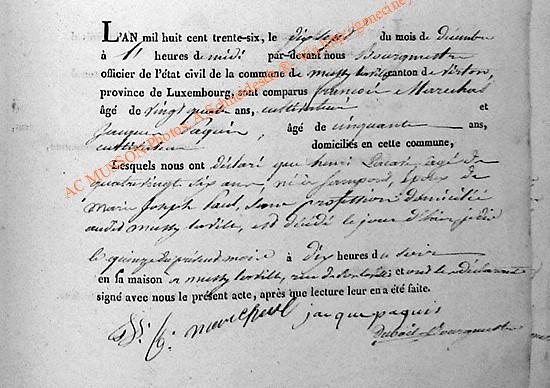 L'AN mil huit cent trente-six, le dix sept du mois de décembre
à 11 heures de midi par-devant nous Bourgmestre
officier de l'état civil de la commune de mussy laville canton de virton,
province de Luxembourg, sont comparus francois Marechal
âgé de vingt quatre ans, cultivateur et
Jacque paquis, âgé de cinquante ans,
cultivateur domiciliés en cette commune,
Lesquels nous ont déclaré que henri agé de
quatre vingt six ans, né à Epoux de
Marie Joseph sans profession domicilié
audit mussy laville, est décédé le jour d'hier,
le quinze du présent mois à dix heures du soir
en sa maison a mussy laville, rue et ont les déclarants
signé avec nous le présent acte, après que lecture leur en a été faite.
marechal jacque paquis
Bourgmestre
AC MUSSON Photos: A.Schneidesch